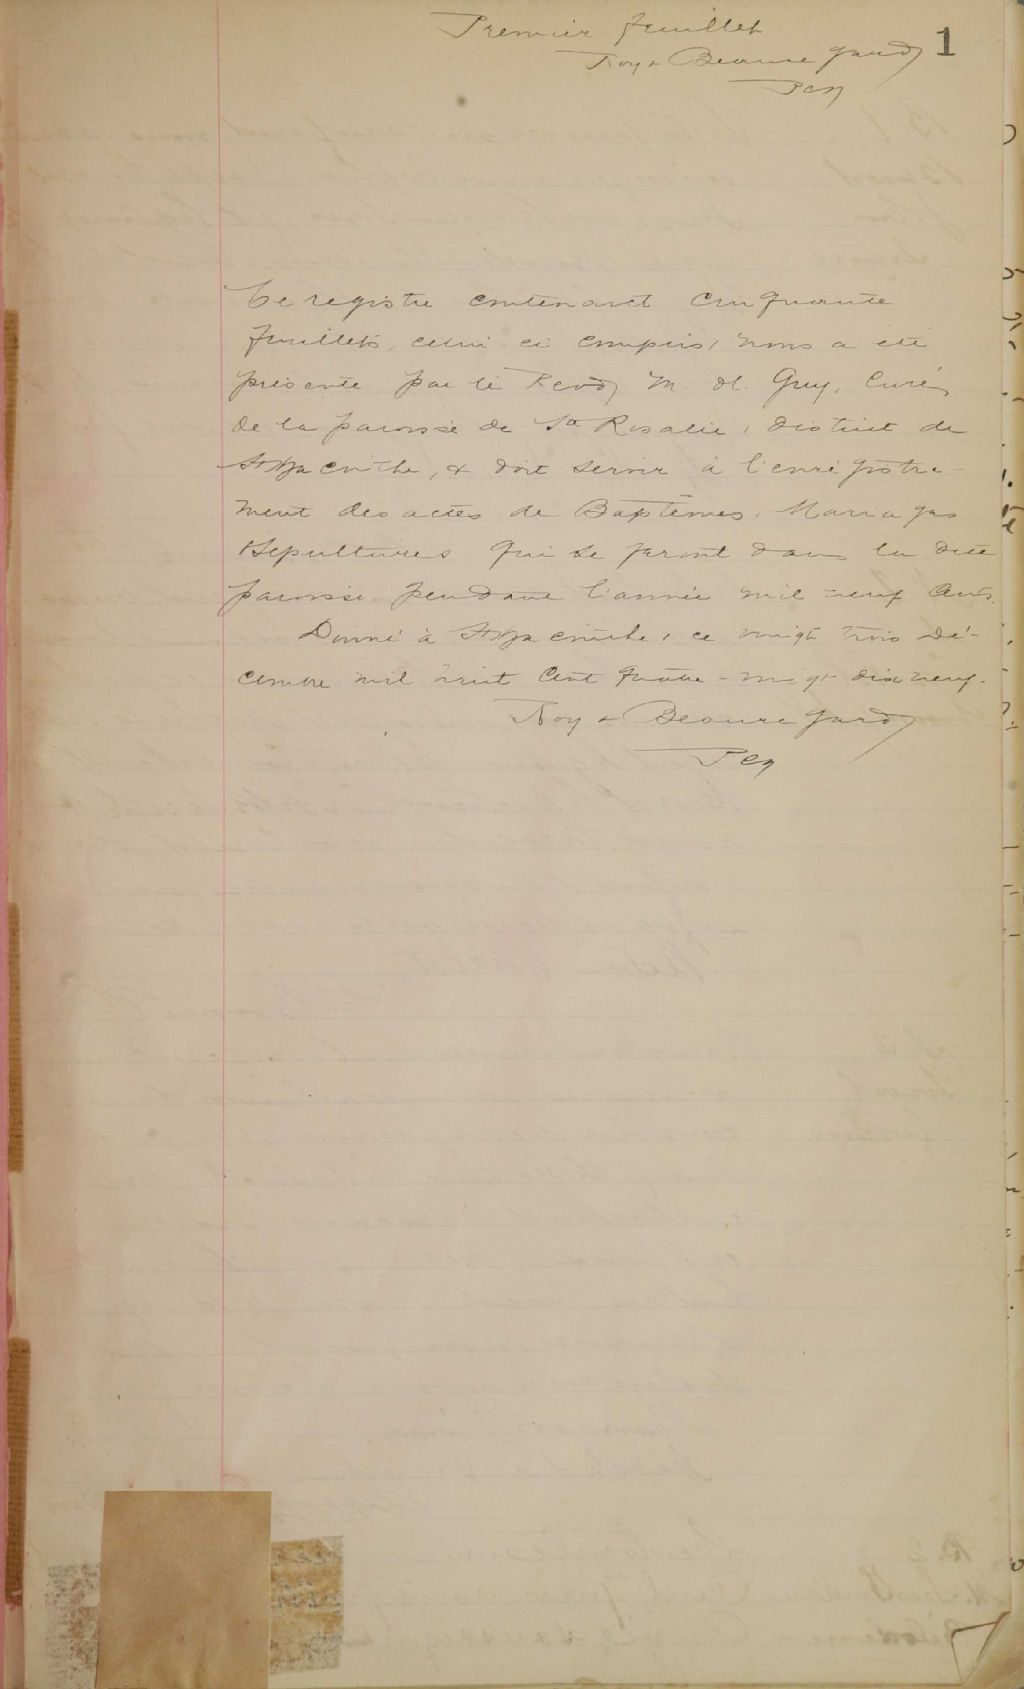 Premier feuillet
1
Roy & Beauregard
PCS
Ce registre contenant cinquante
feuillets, celui-ci compris, nous a été
présenté par le Revd M. H. Guy, Curé
de la paroisse de Ste Rosalie, district de
St Hyacinthe, & doit servir à l'enrégistre-
ment des actes de Baptêmes, Mariages
& Sépultures qui se feront dans la dite
paroisse pendant l'année mil neuf cent.
Donné à St Hyacinthe, ce vingt trois dé-
cembre mil huit cent quatre-vingt dix neuf.
Roy & Beauregard
PCS